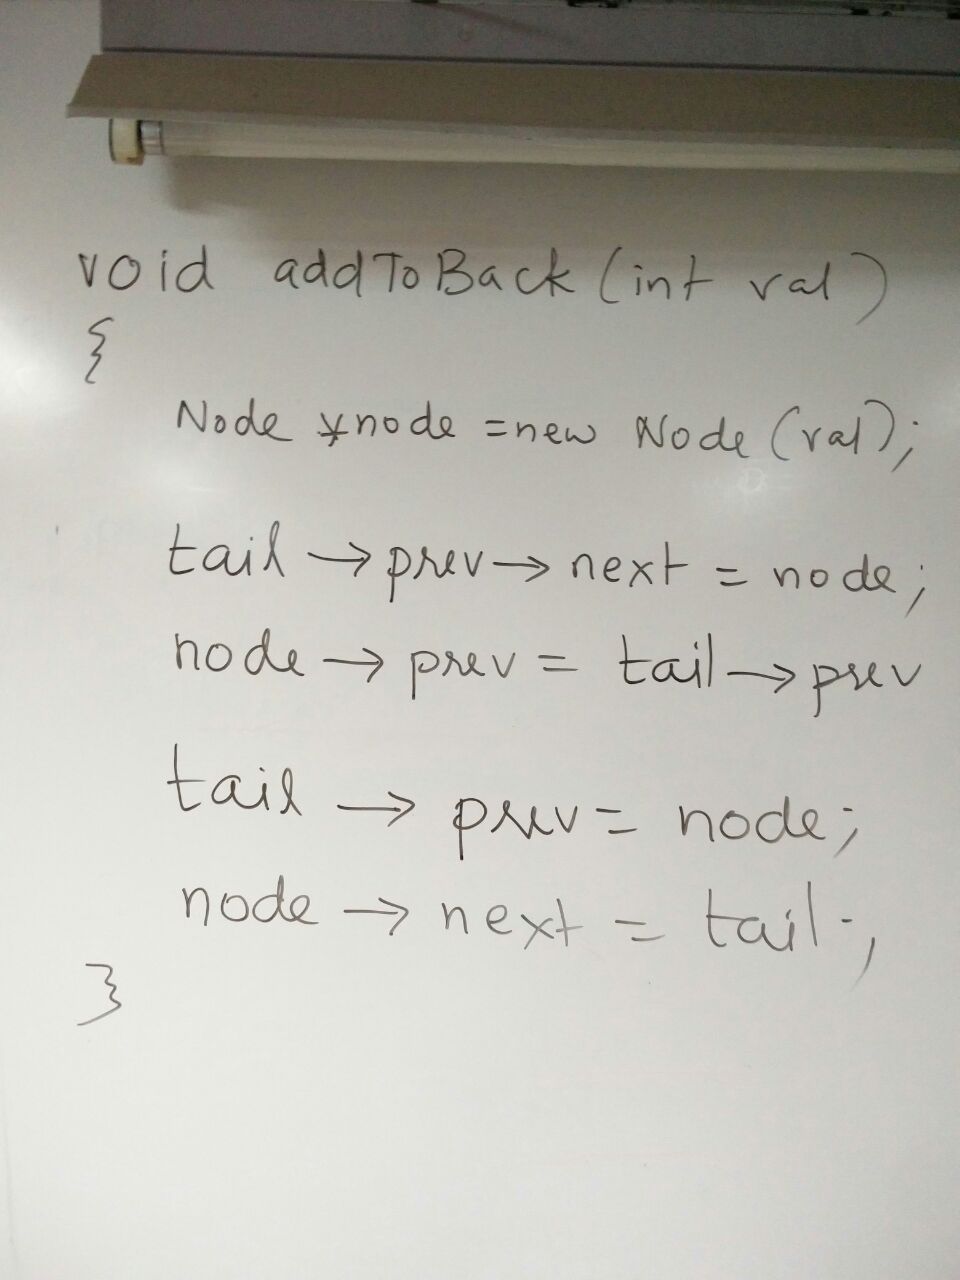 void addToBack (int val)
{
Node *node = new Node (val);
tail → prev → next = node;
node → prev = tail → prev
tail → prev = node;
node → next = tail;
}